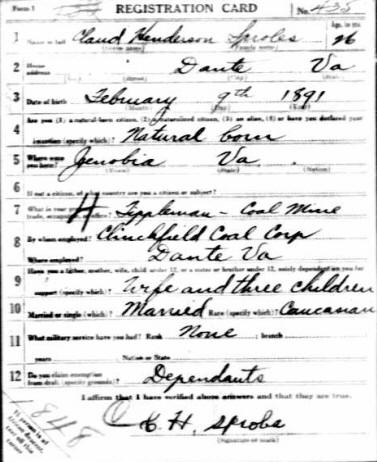 Form 1 REGISTRATION CARD No. 435
1 Name in full Claud Henderson Sproles Age, in yrs 26
(Given name) (Family name)
2 Home address Dante Va
(Street) (City) (State)
3 Date of birth February 9th 1891
(Month) (Day) (Year)
4 Are you (1) a natural-born citizen, (2) a naturalized citizen, (3) an alien, (4) or have you declared your
intention (specify which)? Natural born
5 Where were you born? Zenobia Va
(Town) (State) (Nation)
6 If not a citizen, of what country are you a citizen or subject?
7 What is your present trade, occupation, or office? Tippleman - Coal Mine
8 By whom employed? Clinchfield Coal Corp
Where employed? Dante Va
9 Have you a father, mother, wife, child under 12, or a sister or brother under 12, solely dependent on you for
support (specify which)? Wife and three children
10 Married or single (which)? Married Race (specify which)? Caucasian
11 What military service have you had? Rank None ; branch
years Nation or State
12 Do you claim exemption from draft (specify grounds)? Dependants
I affirm that I have verified above answers and that they are true.
C. H. Sprols
(Signature or mark)
1848